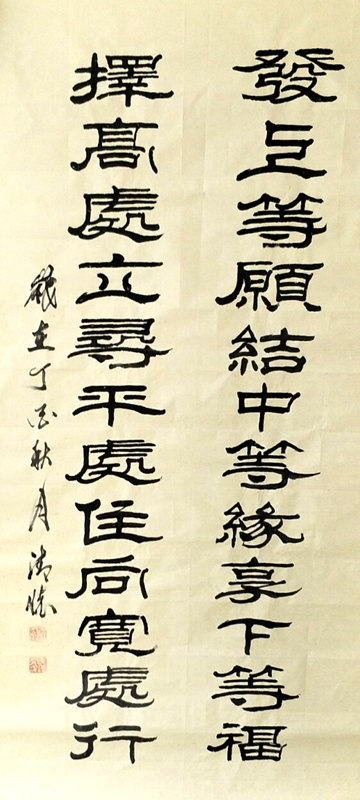 發上等願結中等緣享下等福
擇高處立尋平處住向寬處行
歲在丁酉秋月